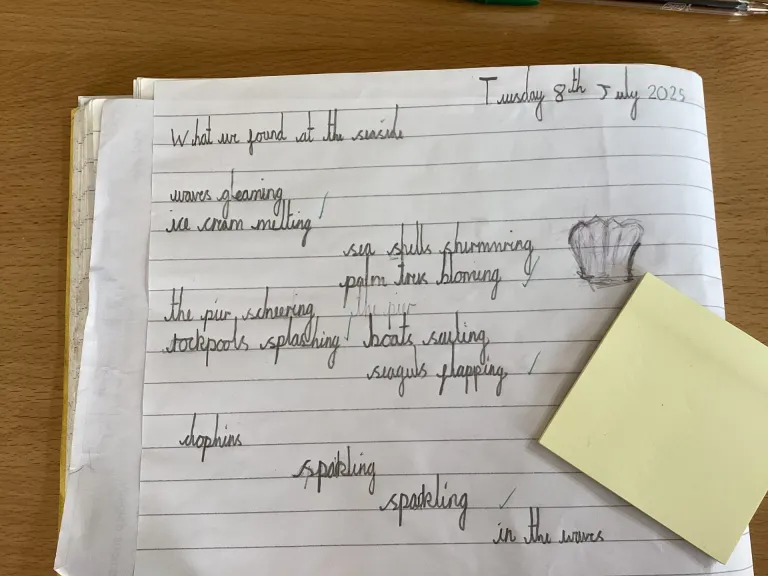 Tuesday 8th July 2025
What we found at the seaside
waves gleaming
ice cream melting
sea shells shurmmring
palm trees bloming
the pier scheering the pier
rockpools splashing boats sayling
seaguls flapping
dophins
sparkling
sparkling
in the waves